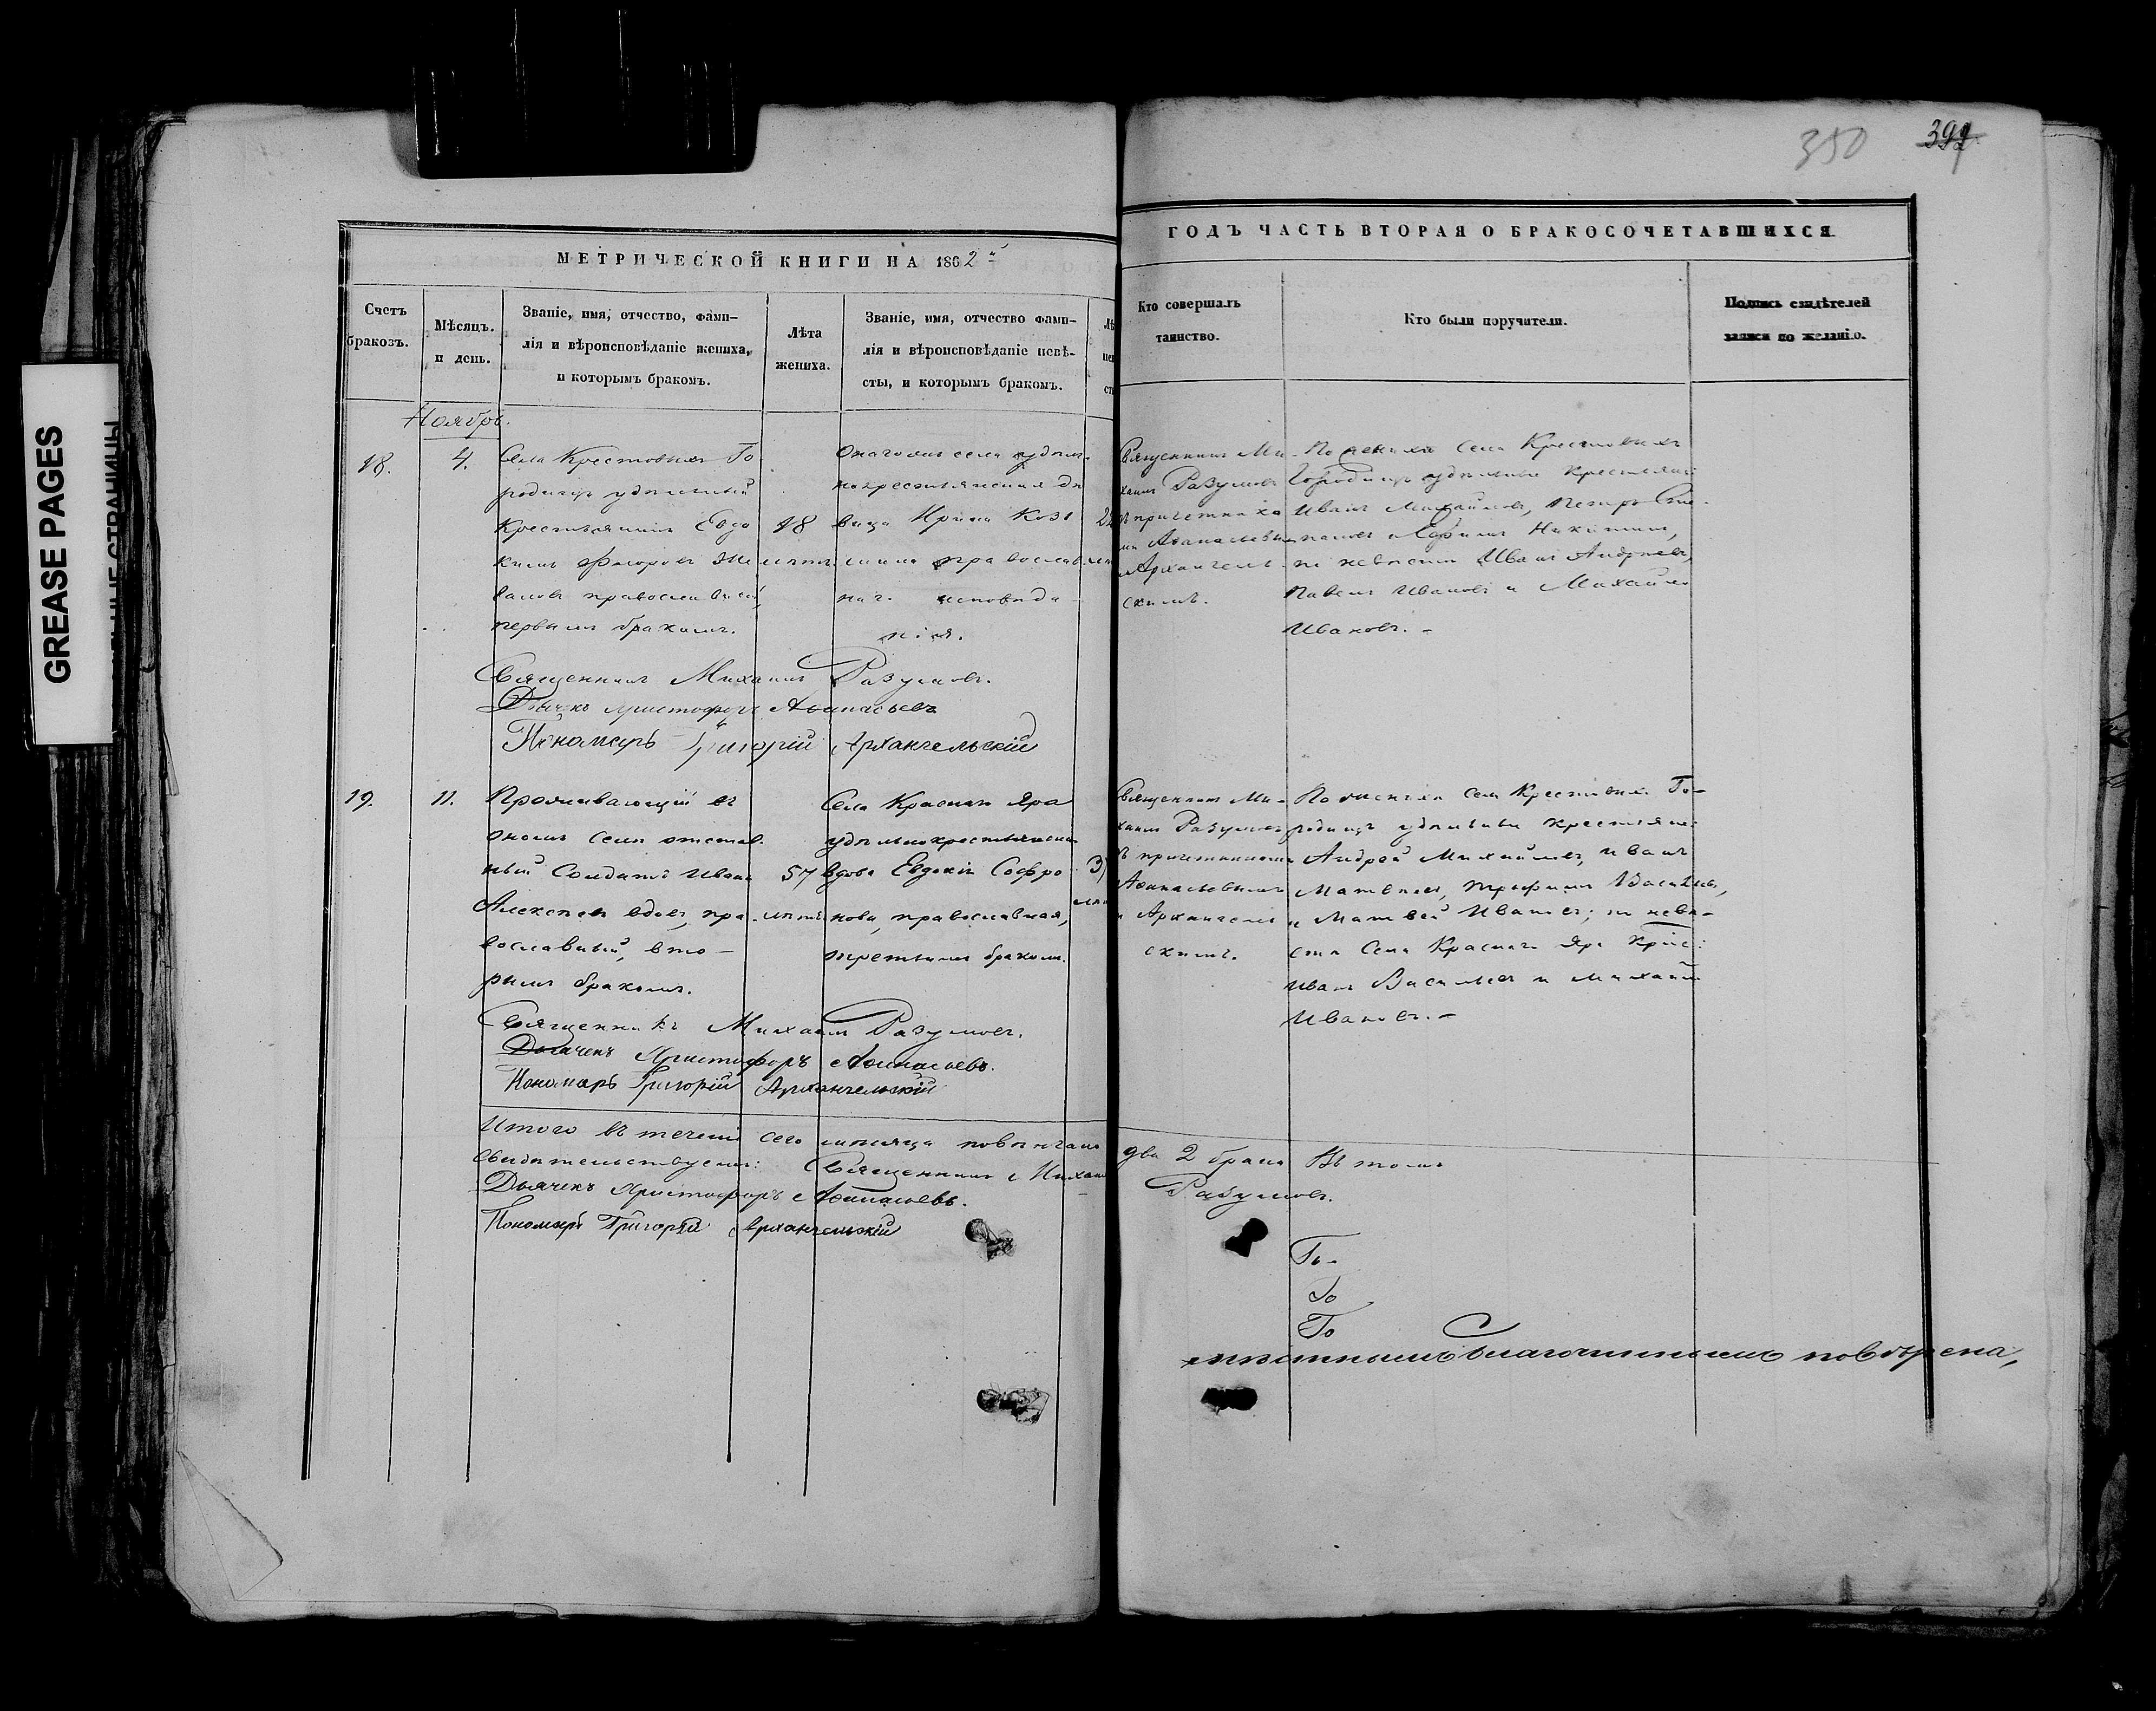 GREASE PAGES
350
МЕТРИЧЕСКОЙ КНИГИ НА 1862й
ГОДЪ ЧАСТЬ ВТОРАЯ О БРАКОСОЧЕТАВШИХСЯ
Счетъ
браковъ.
Мѣсяцъ.
и день.
Званіе, имя, отчество, фами-
лія и вѣроисповѣданіе жениха,
и которымъ бракомъ.
Лѣта
жениха.
Званіе, имя, отчество фами-
лія и вѣроисповѣданіе невѣ-
сты, и которымъ бракомъ.
Кто совершалъ
таинство.
Кто были поручители.
Подпись свидѣтелей
записи по желанію.
Ноябрь.
18.
4.
Села Крестовыхъ Го
родищъ удѣльный
крестьянинъ Евдо
кимъ Ѳедоровъ
православный,
первымъ бракомъ.
18
лѣтъ
Онагожъ села удѣль
нокрестьянская дѣ
вица Ирина
православ
наго исповѣда
нія.
22
Священникъ Ми
хаилъ Разумовъ
съ причетника
ми Аѳанасьевы
Архангель
скимъ.
По женихѣ села Крестовыхъ
Городищъ удѣльные крестьяне
Иванъ Михайловъ, Петръ Сте
пановъ Никитинъ,
по невѣстѣ Иванъ Андреевъ,
Павелъ Ивановъ и Михайло
Ивановъ. –
Священникъ Михаилъ Разумовъ.
Дьячекъ Христофоръ Аѳанасьевъ
Пономарь Григорій Архангельскій
19.
11.
Проживающій въ
ономъ селѣ отстав
ный Солдатъ Иванъ
Алексѣевъ вдовъ, пра
вославный, вто–
рымъ бракомъ.
57
лѣтъ
Села Краснаго Яра
удѣльнокрестьянская
вдова Евдокія Софро
нова, православная,
третьимъ бракомъ.
Священникъ Ми–
хаилъ Разумовъ
съ причетниками
Аѳанасьевымъ
и Архангель
скимъ.
По женихѣ села Крестовыхъ Го–
родищъ удѣльные крестьяне:
Андрей Михайловъ, Иванъ
Матвѣевъ, Трофимъ Васильевъ,
и Матвей Ивановъ; по невѣ–
стѣ Села Краснаго Яра крес:
Иванъ Васильевъ и Михайло
Ивановъ. –
Священникъ Михаилъ Разумовъ.
Дьячекъ Христофоръ Аѳанасьевъ.
Пономарь Григорій Архангельскій
Итого въ теченіи сего мѣсяца повѣнчано два 2 брака Въ томъ
свидѣтельствуемъ: Священникъ Михаилъ Разумовъ.
Дьячекъ Христофоръ Аѳанасьевъ.
Пономарь Григорій Архангельскій
Благочиннымъ повѣрена,